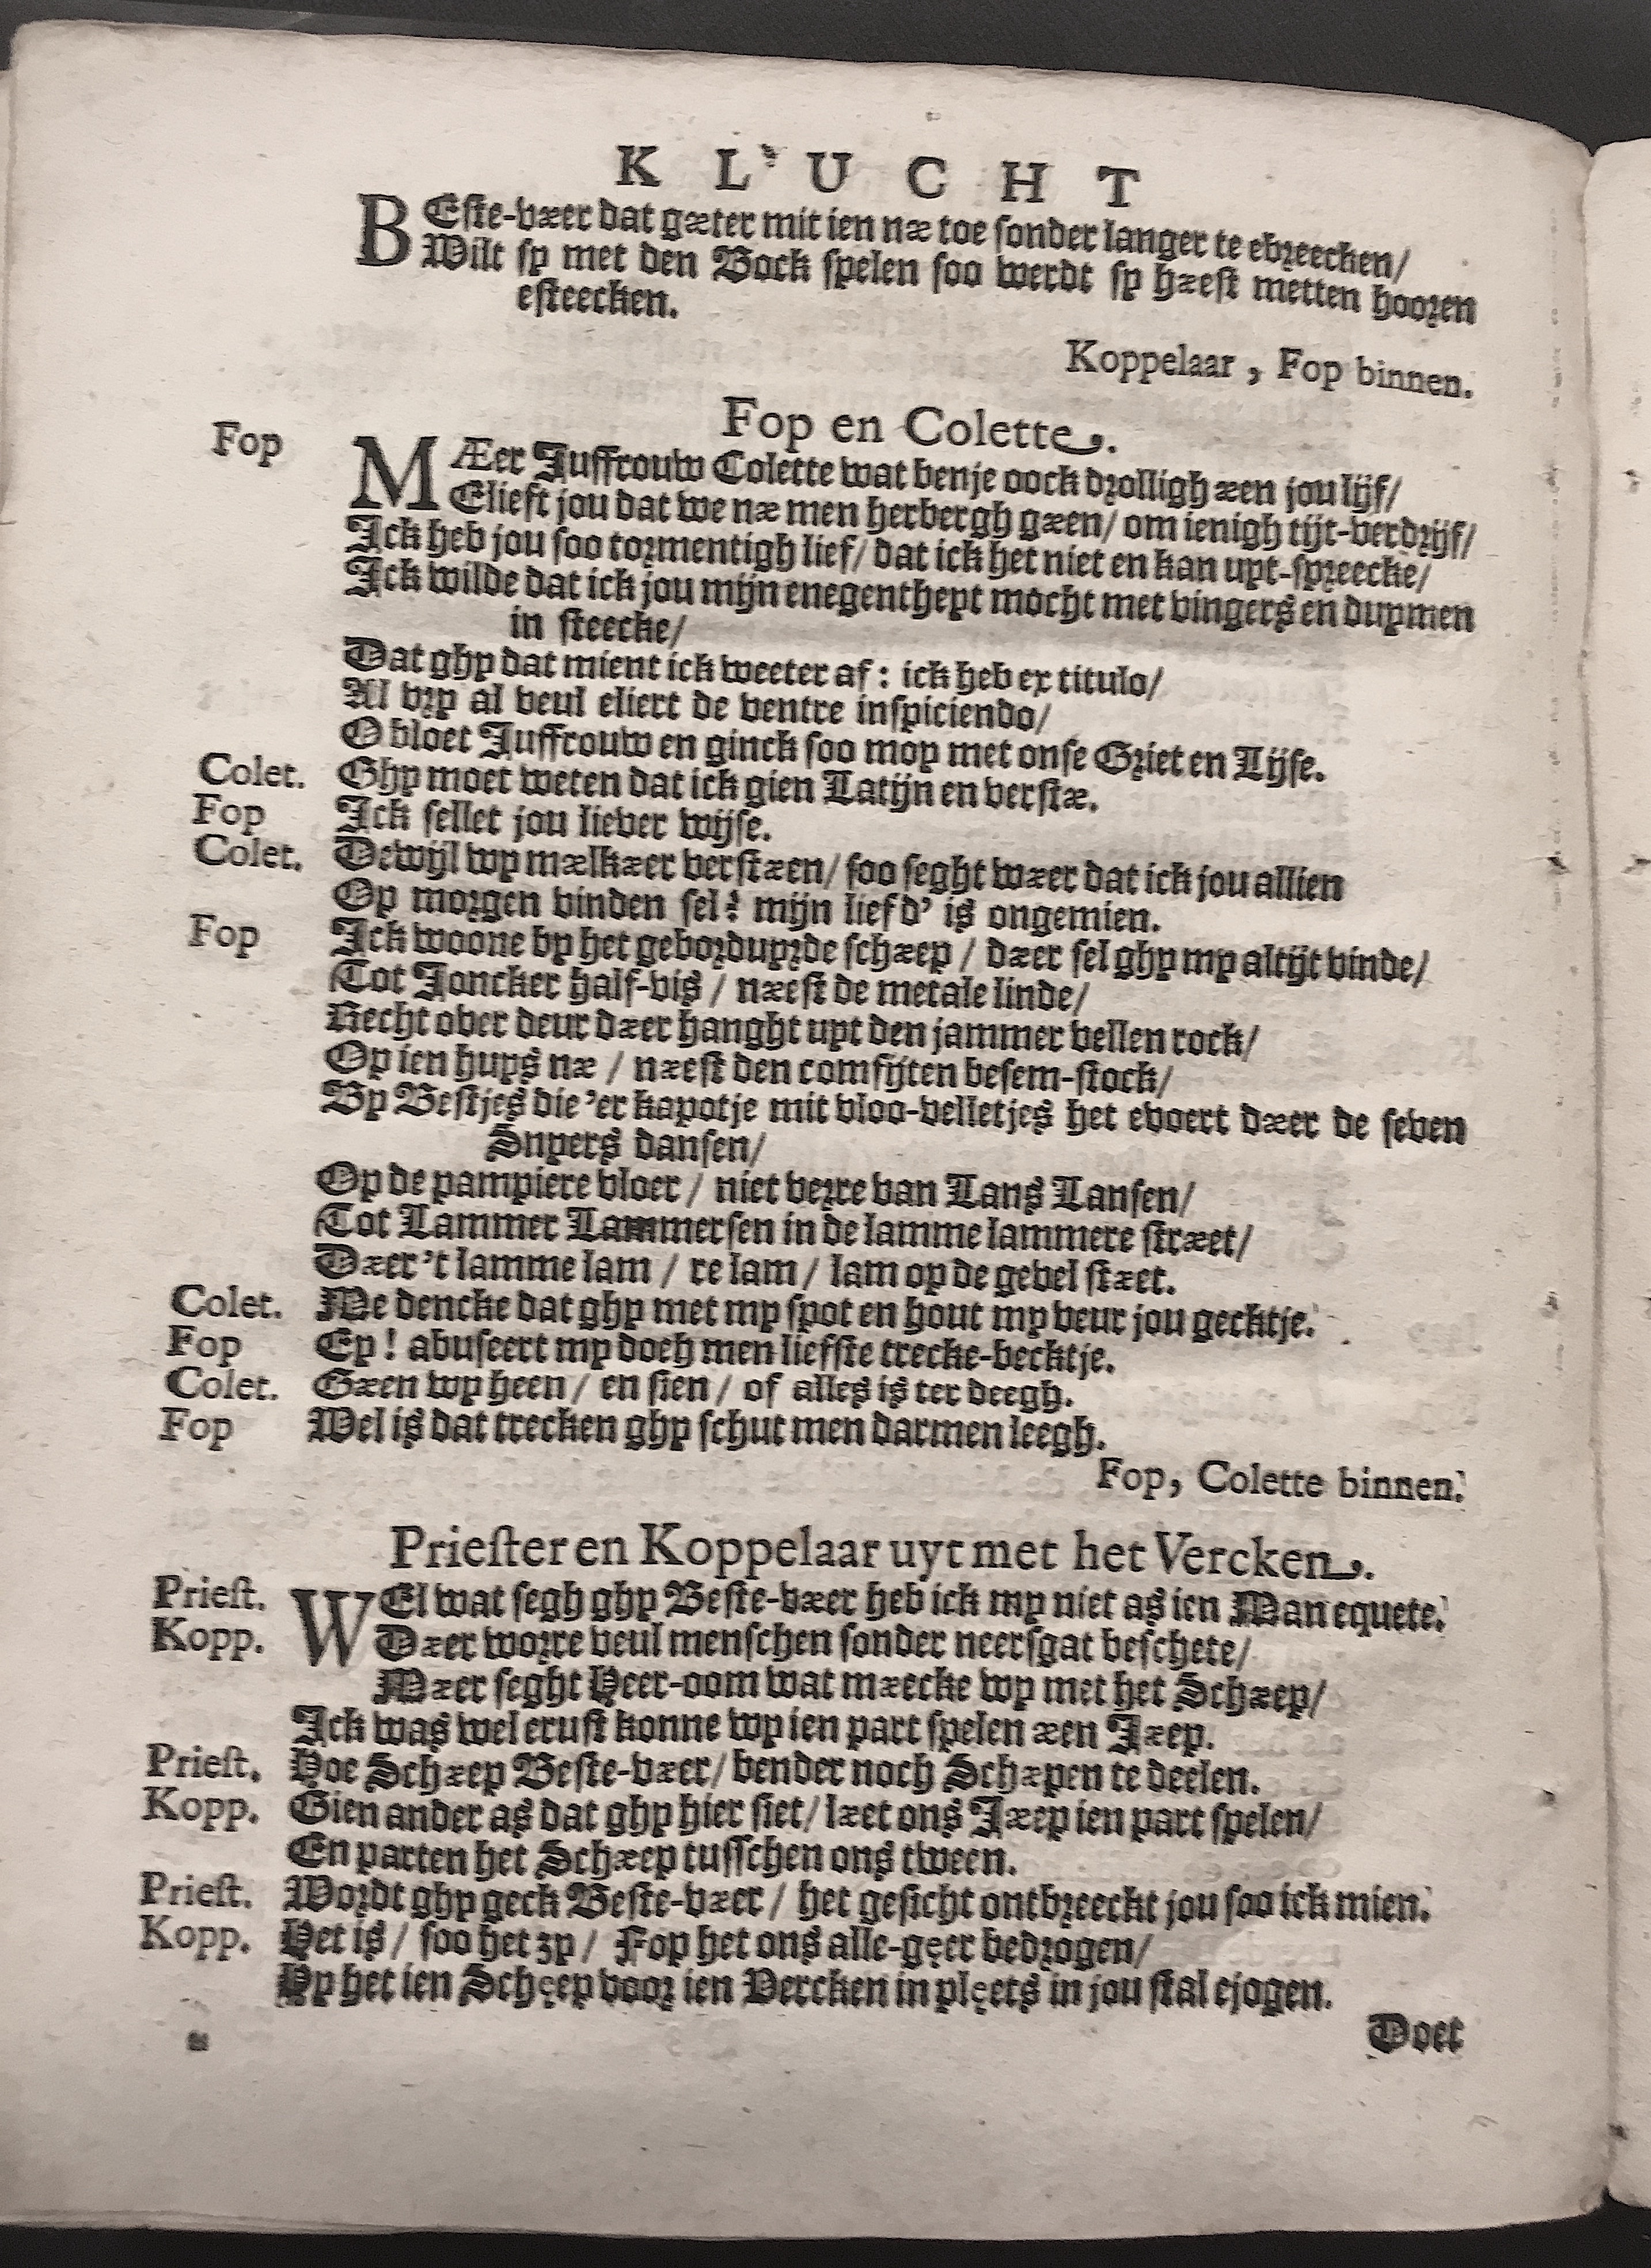 K L U C H T
BEste-væer dat gæter mit ien næ toe sonder langer te ebreecken/
Wilt sy met den Bock spelen soo werdt sy hæest metten hooren
esteecken.
Koppelaar, Fop binnen.
Fop en Colette.
Fop MÆer Juffrouw Colette wat benje oock drolligh æen jou lijf/
Elieft jou dat we næ men herbergh gæen/ om ienigh tijt-verdrijf/
Ick heb jou soo tormentigh lief/ dat ick het niet en kan uyt-spreecke/
Ick wilde dat ick jou mijn enegentheyt mocht met vingers en duymen
in steecke/
Dat ghy dat mient ick weeter af: ick heb ex titulo/
Al vry al veul eliert de ventre inspiciendo/
O bloet Juffrouw en ginck soo moy met onse Griet en Lijse.
Colet. Ghy moet weten dat ick gien Latijn en verstæ.
Fop Ick sellet jou liever wijse.
Colet. Dewijl wy mælkæer verstæen/ soo seght wæer dat ick jou allien
Op morgen vinden sel? mijn liefd' is ongemien.
Fop Ick woone by het geborduyrde schæep / dæer sel ghy my altijt vinde/
Tot Joncker half-vis / næest de metale linde/
Recht over deur dæer hanght uyt den jammer vellen rock/
Op ien huys næ / næest den comfijten besem-stock/
By Bestjes die 'er kapotje mit vloo-velletjes het evoert dæer de seven
Snyers dansen/
Op de pampiere vloer / niet verre van Lans Lansen/
Tot Lammer Lammersen in de lamme lammere stræet/
Dæer 't lamme lam / re lam / lam op de gevel stæet.
Colet. Me dencke dat ghy met my spot en hout my veur jou gecktje.
Fop Ey ! abuseert my doch men liefste trecke-becktje.
Colet. Gæen wy heen / en sien / of alles is ter deegh.
Fop Wel is dat trecken ghy schut men darmen leegh.
Fop, Colette binnen.
Priester en Koppelaar uyt met het Vercken.
Priest. WEl wat segh ghy Beste-væer heb ick my niet as ien Man equete.
Kopp. Dæer worre veul menschen sonder neersgat beschete/
Mæer seght Heer-oom wat mæecke wy met het Schæep/
Ick was wel erust konne wy ien part spelen æen Jæep.
Priest. Hoe Schæep Beste-væer/ bender noch Schæpen te deelen.
Kopp. Gien ander as dat ghy hier siet/ læet ons Jæep ien part spelen/
En parten het Schæep tusschen ons tween.
Priest. Wordt ghy geck Beste-væer / het gesicht ontbreeckt jou soo ick mien.
Kopp. Het is / soo het zy / Fop het ons alle-gęer bedrogen/
Hy het ien Schęep voor ien Vercken in plęets in jou stal ejogen.
Doet